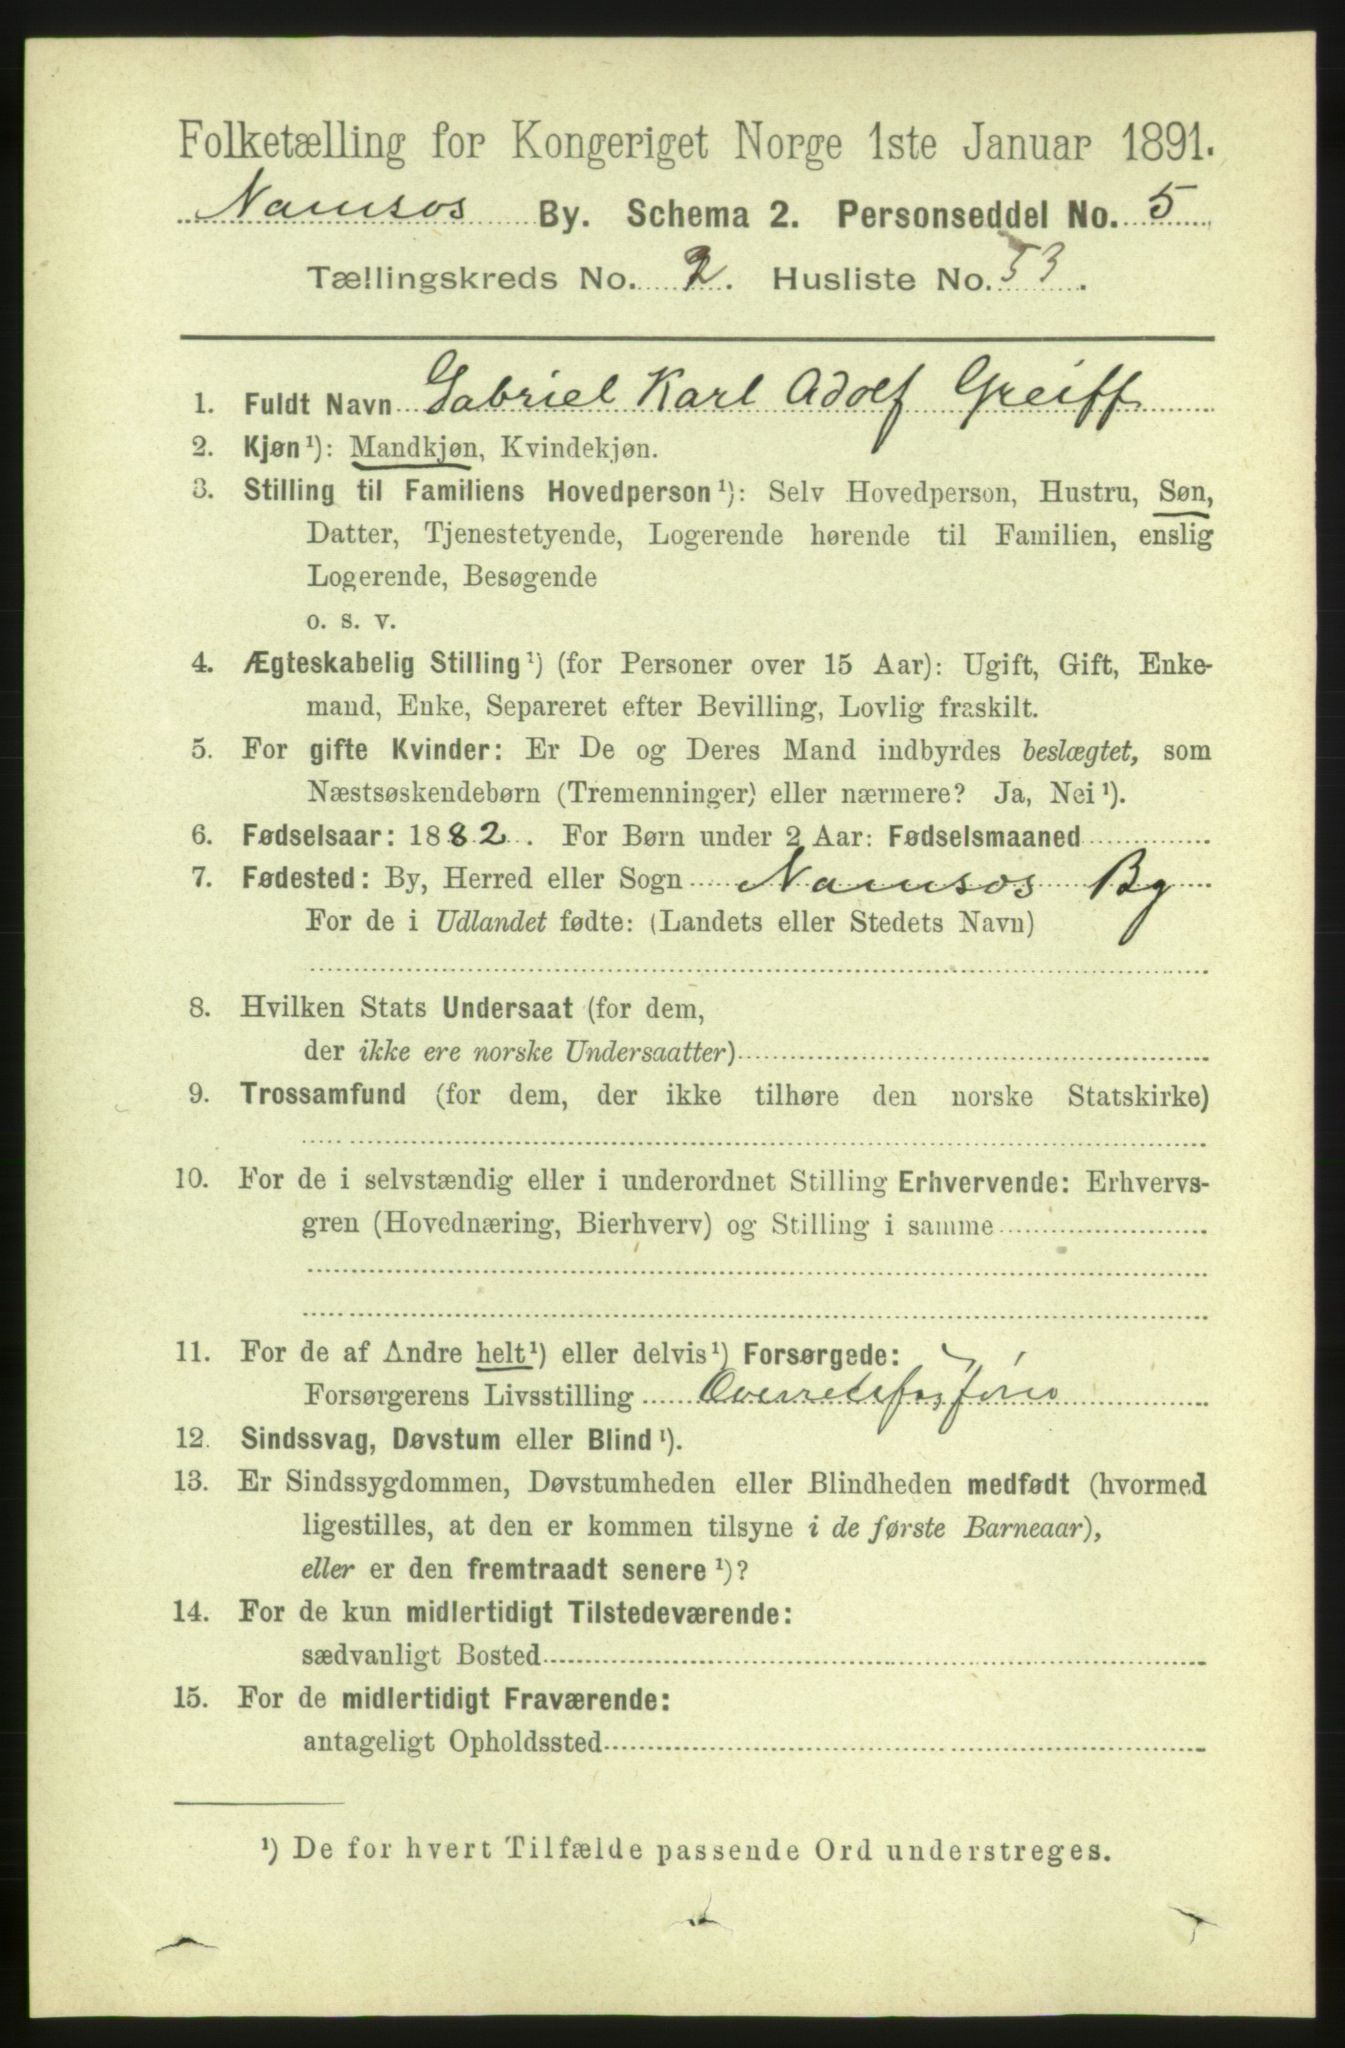 Folketælling for Kongeriget Norge 1ste Januar 1891.
Namsos By. Schema 2. Personseddel No. 5
Tællingskreds No. 2. Husliste No. 53.
1. Fuldt Navn Gabriel Karl Adolf Greiff
2. Kjøn¹): Mandkjøn, Kvindekjøn.
3. Stilling til Familiens Hovedperson¹): Selv Hovedperson, Hustru, Søn,
Datter, Tjenestetyende, Logerende hørende til Familien, enslig
Logerende, Besøgende
o. s. v.
4. Ægteskabelig Stilling¹) (for Personer over 15 Aar): Ugift, Gift, Enke-
mand, Enke, Separeret efter Bevilling, Lovlig fraskilt.
5. For gifte Kvinder: Er De og Deres Mand indbyrdes beslægtet, som
Næstsøskendebørn (Tremenninger) eller nærmere? Ja, Nei¹).
6. Fødselsaar: 1882. For Børn under 2 Aar: Fødselsmaaned
7. Fødested: By, Herred eller Sogn Namsos By
For de i Udlandet fødte: (Landets eller Stedets Navn)
8. Hvilken Stats Undersaat (for dem,
der ikke ere norske Undersaatter)
9. Trossamfund (for dem, der ikke tilhøre den norske Statskirke)
10. For de i selvstændig eller i underordnet Stilling Erhvervende: Erhvervs-
gren (Hovednæring, Bierhverv) og Stilling i samme
11. For de af Andre helt¹) eller delvis¹) Forsørgede:
Forsørgerens Livsstilling
12. Sindssvag, Døvstum eller Blind¹).
13. Er Sindssygdommen, Døvstumheden eller Blindheden medfødt (hvormed
ligestilles, at den er kommen tilsyne i de første Barneaar),
eller er den fremtraadt senere¹)?
14. For de kun midlertidigt Tilstedeværende:
sædvanligt Bosted
15. For de midlertidigt Fraværende:
antageligt Opholdssted
¹) De for hvert Tilfælde passende Ord understreges.